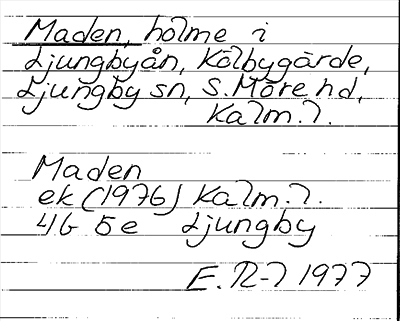 Maden, holme i
Ljungbyån, Kölbygärde,
Ljungby sn, S. Möre hd,
Kalm. l.
Maden
ek (1976) Kalm. l.
4G 5e Ljungby
1977